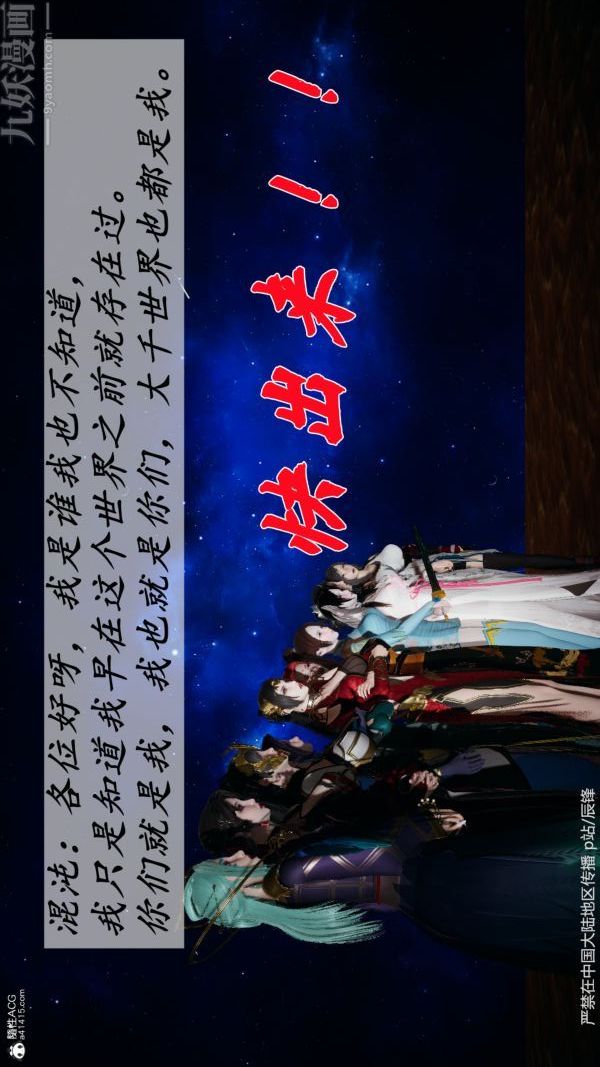 混沌：各位好呀，我是谁我也不知道，
我只是知道我早在这个世界之前就存在过。
你们就是我，我也就是你们，大千世界也都是我。
快出来！！
九妖漫画
9yaomh.com
隨性ACG
a41415.com
严禁在中国大陆地区传播 p站/辰锋